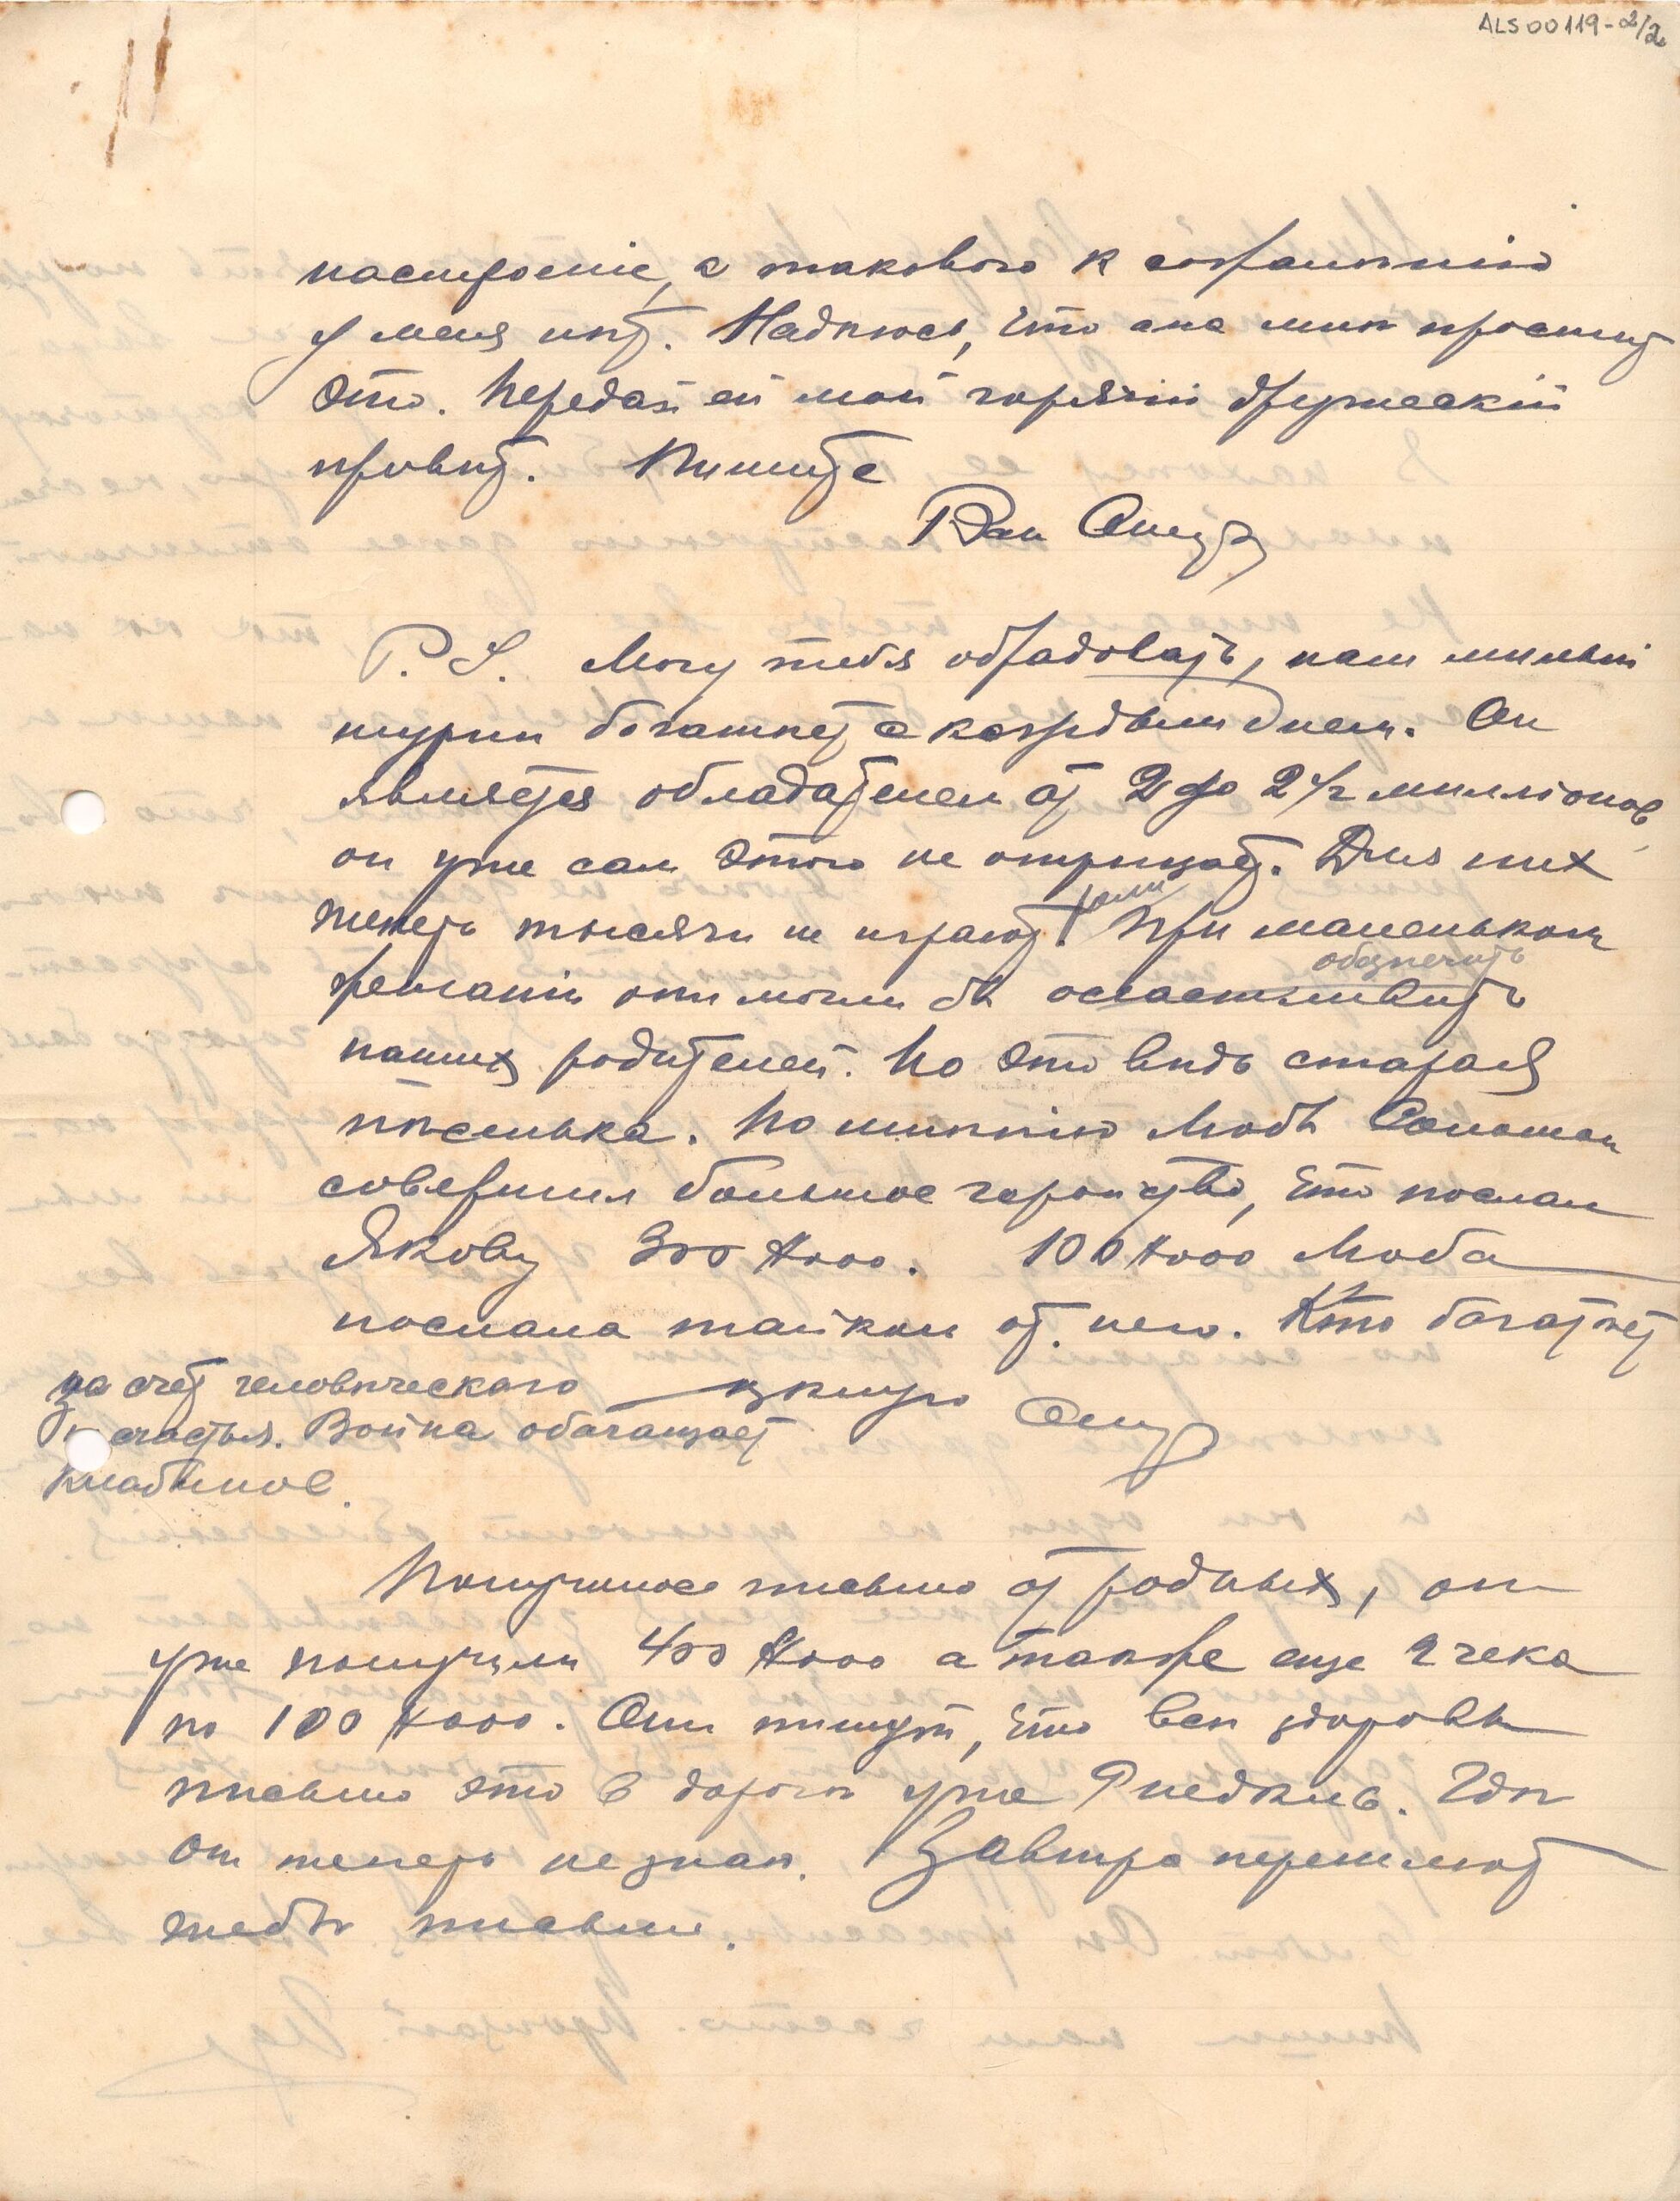 ALS00119-2/2
настроенiе, а такового к сожаленiю
у меня нѣт. Надѣюсь, что она мнѣ простит
это. Передай ей мой горячiй дружескiй
привѣт. Пишите
Ваш
P.S. Могу тебя обрадовать, наш милый
шурин богатѣет с каждым днем. Он
является обладателем от 2 до 2 1/2 миллiонов
он уже сам этого не отрицает. Для них
теперь тысячи не играют роли. При маленьком
желанiи они могли бы осчастливить
обезпечить
наших родителей. Но это вѣдь старая
пѣсенька. По мнѣнiю Любы Соломон
совершил большое геройство, что послал
Якову 300 000. 100 000 Люба
послала тайком от него. Кто богатѣет
на счет человѣческаго
счастья. Война обогащает
Получилось письмо от родных, они
уже получили 400 000 а также еще 2 чека
по 100 000. Они пишут, что всѣ здоровы
письмо это в дороге уже недѣль. Гдѣ
они теперь не знаю. Завтра перешлют
тебѣ письмо.